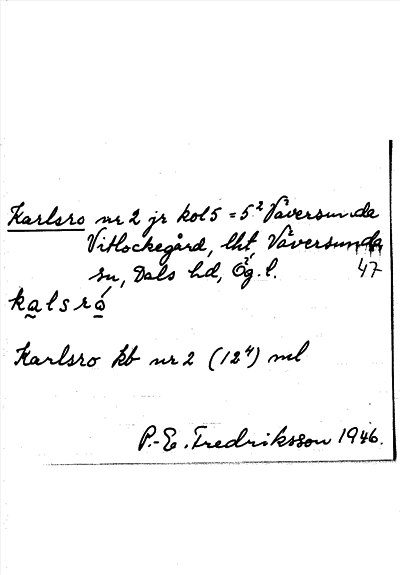 Karlsro nr 2 jr kol 5 = 5² Väversunda
Vitlockegård, lht Väversunda
sn, Dals hd, Ög. l. 47
kalsró
Karlsro kb nr 2 (12⁴) ml
P.-E. Fredriksson 1946.